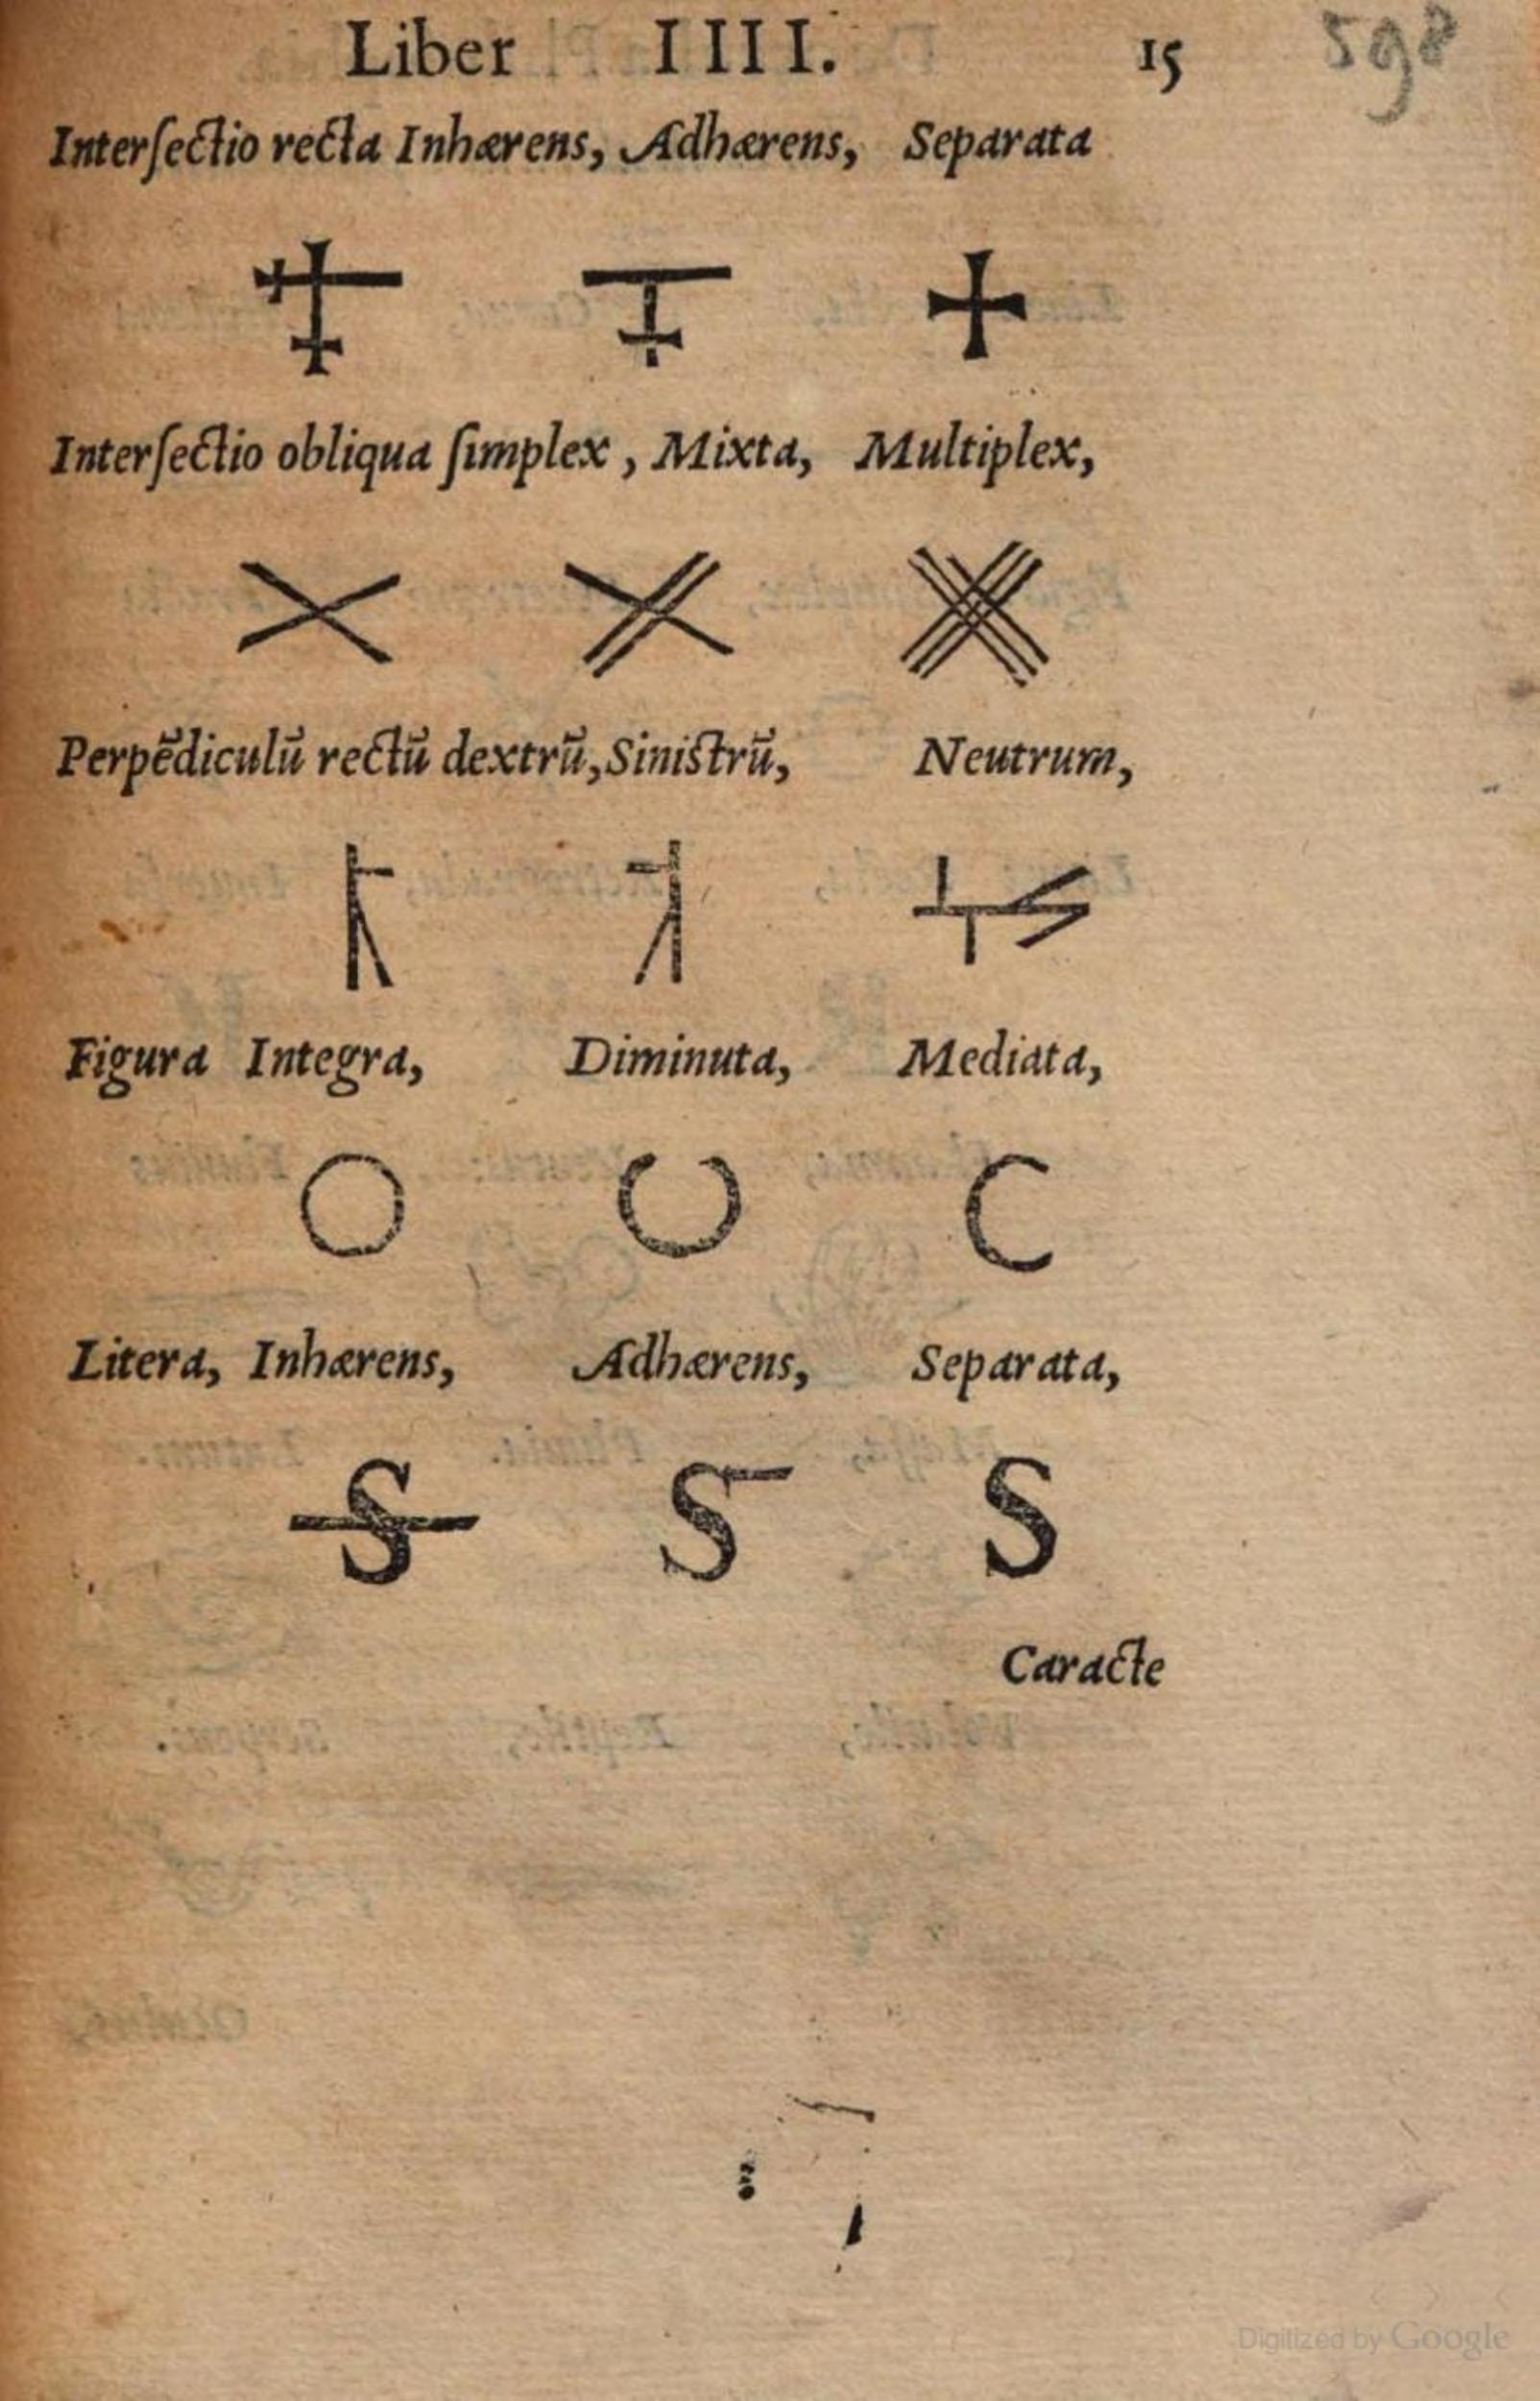 Liber IIII. 15 598
Interſectio recta Inhærens, Adhærens, Separata
Interſectio obliqua ſimplex, Mixta, Multiplex,
Perpēdiculū rectū dextrū, Siniſtrū, Neutrum,
Figura Integra, Diminuta, Mediata,
Litera, Inhærens, Adhærens, Separata,
S S S
Caracte
Digitized by Google